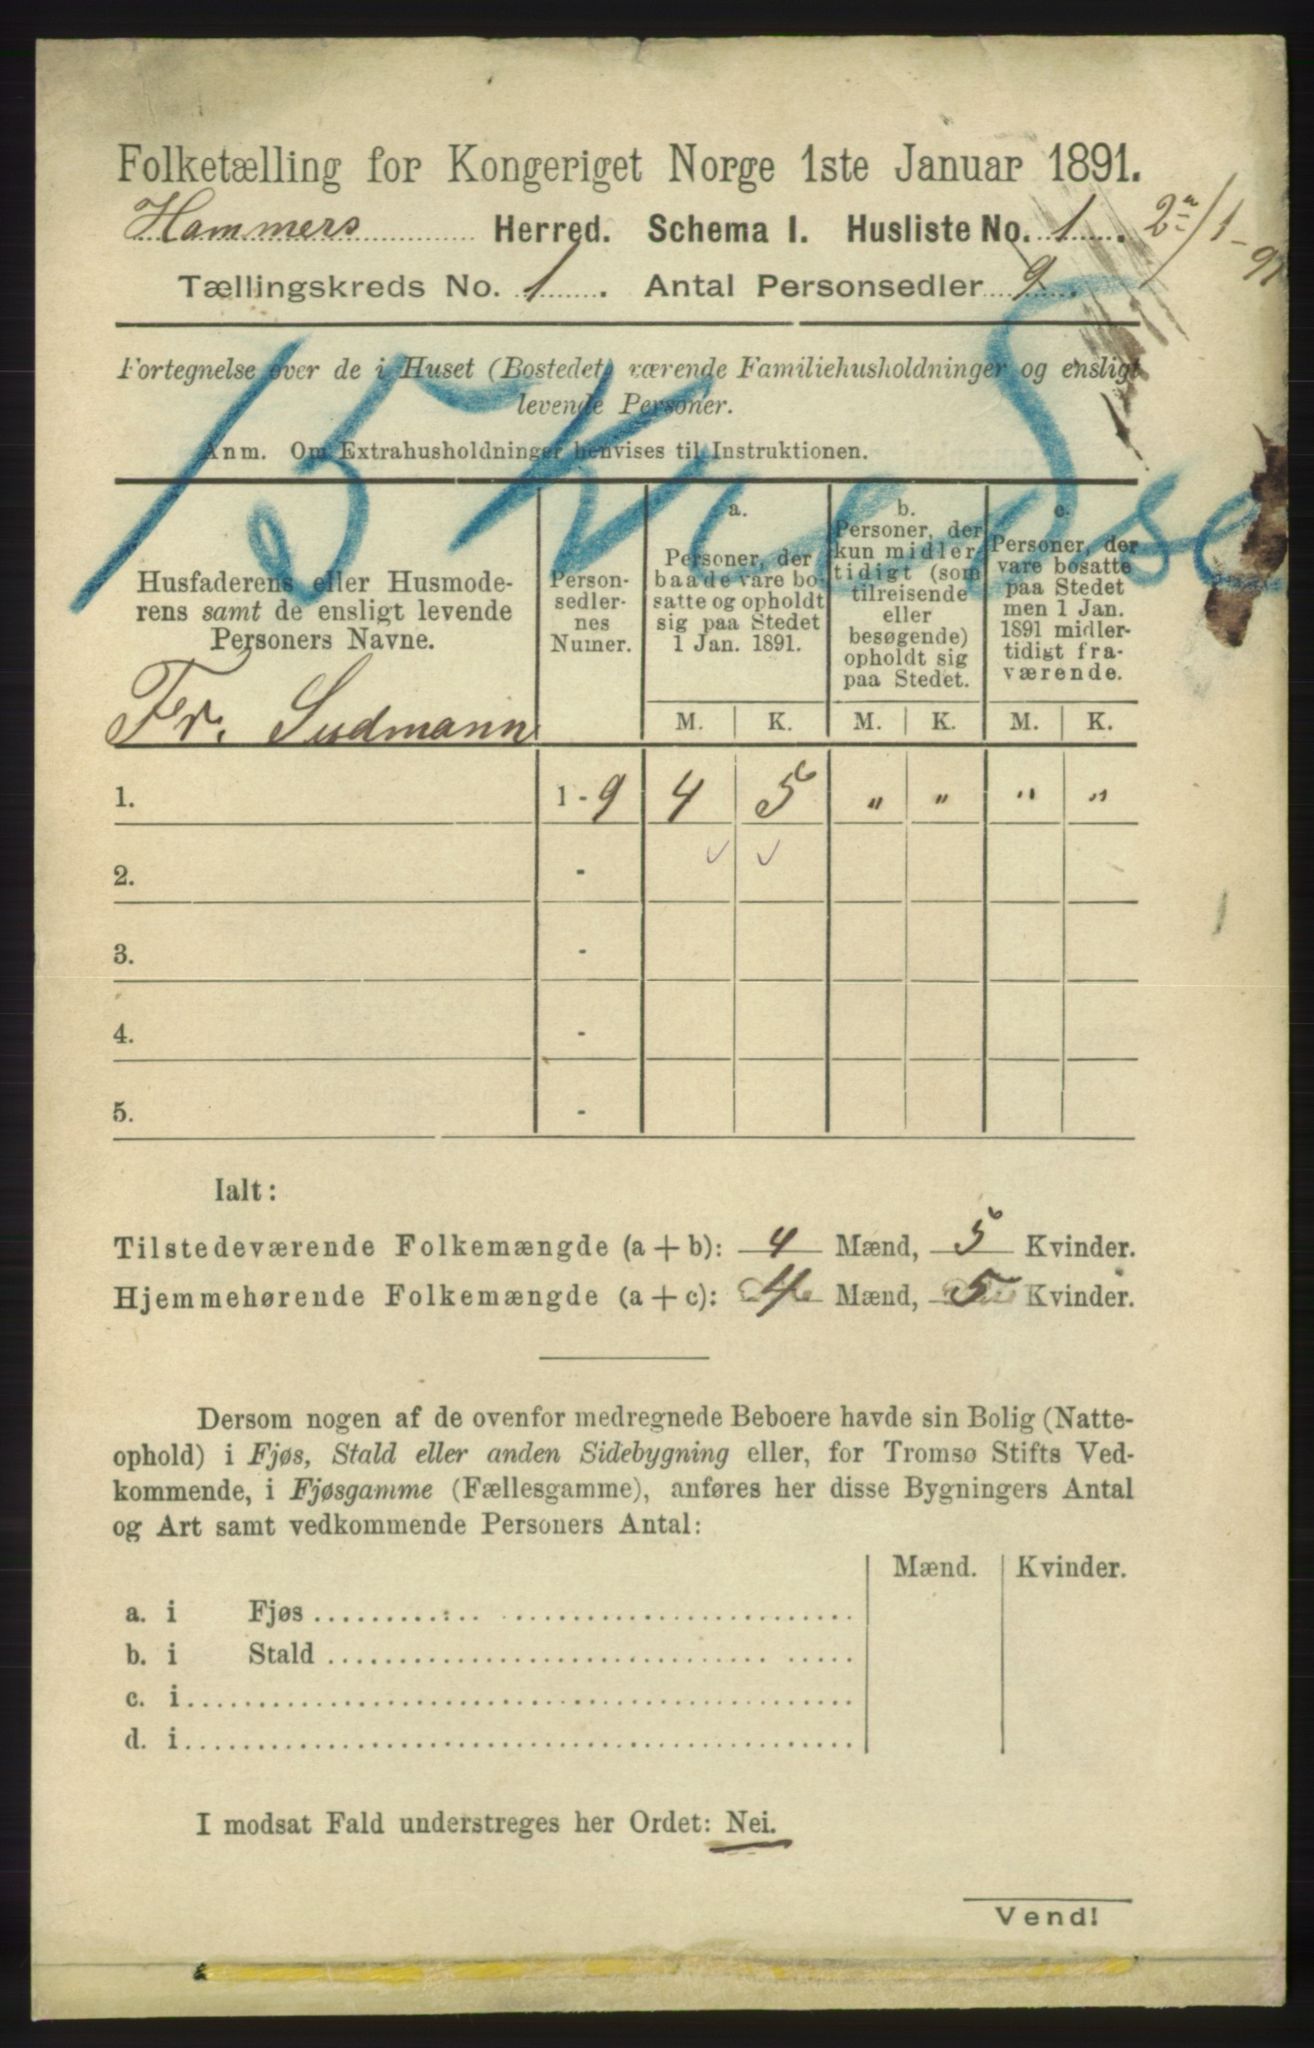 Folketælling for Kongeriget Norge 1ste Januar 1891.
Hammers Herred. Schema I. Husliste No. 1. 2/1-91
Tællingskreds No. 1. Antal Personsedler 9.
15 Kredse
Fortegnelse over de i Huset (Bostedet) værende Familiehusholdninger og ensligt
levende Personer.
Anm. Om Extrahusholdninger henvises til Instruktionen.
Husfaderens eller Husmode-
rens samt de ensligt levende
Personers Navne.
Person-
sedler-
nes
Numer.
a.
Personer, der
baade vare bo-
satte og opholdt
sig paa Stedet
1 Jan. 1891.
b.
Personer, der
kun midler-
tidigt (som
tilreisende
eller
besøgende)
opholdt sig
paa Stedet.
c.
Personer, der
vare bosatte
paa Stedet
men 1 Jan.
1891 midler-
tidigt fra-
værende.
M. K. M. K. M. K.
Fr. Sudmann
1. 1 - 9 4 5 " " " "
2. -
3. -
4. -
5. -
Ialt:
Tilstedeværende Folkemængde (a+b): 4 Mænd, 5 Kvinder.
Hjemmehørende Folkemængde (a+c): 4 Mænd, 5 Kvinder.
Dersom nogen af de ovenfor medregnede Beboere havde sin Bolig (Natte-
ophold) i Fjøs, Stald eller anden Sidebygning eller, for Tromsø Stifts Ved-
kommende, i Fjøsgamme (Fællesgamme), anføres her disse Bygningers Antal
og Art samt vedkommende Personers Antal:
Mænd. Kvinder.
a. i Fjøs
b. i Stald
c. i
d. i
I modsat Fald understreges her Ordet: Nei.
Vend!